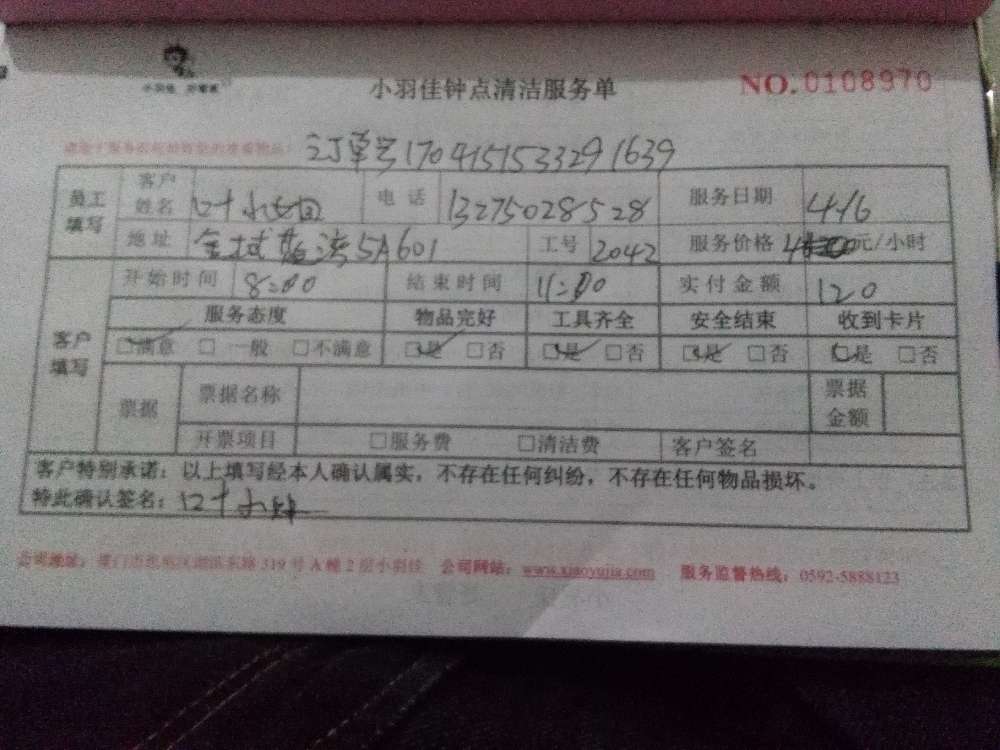 小羽佳 好帮家
小羽佳钟点清洁服务单
NO.0108970
订单号170415153329 1639
员工填写 客户姓名 叶小 电话 13275028528 服务日期 4-16
地址 5A601 工号 2042 服务价格 元/小时
客户填写 开始时间 8:00 结束时间 11:00 实付金额 120
服务态度 物品完好 工具齐全 安全结束 收到卡片
☑满意 □一般 □不满意 ☑是 □否 ☑是 □否 ☑是 □否 ☑是 □否
票据 票据名称 票据金额
开票项目 □服务费 □清洁费 客户签名
客户特别承诺:以上填写经本人确认属实,不存在任何纠纷,不存在任何物品损坏。
特此确认签名:叶小
公司地址:厦门市思明区湖滨东路319号A幢2层小羽佳 公司网站:www.xiaoyujia.com 服务监督热线:0592-5888123